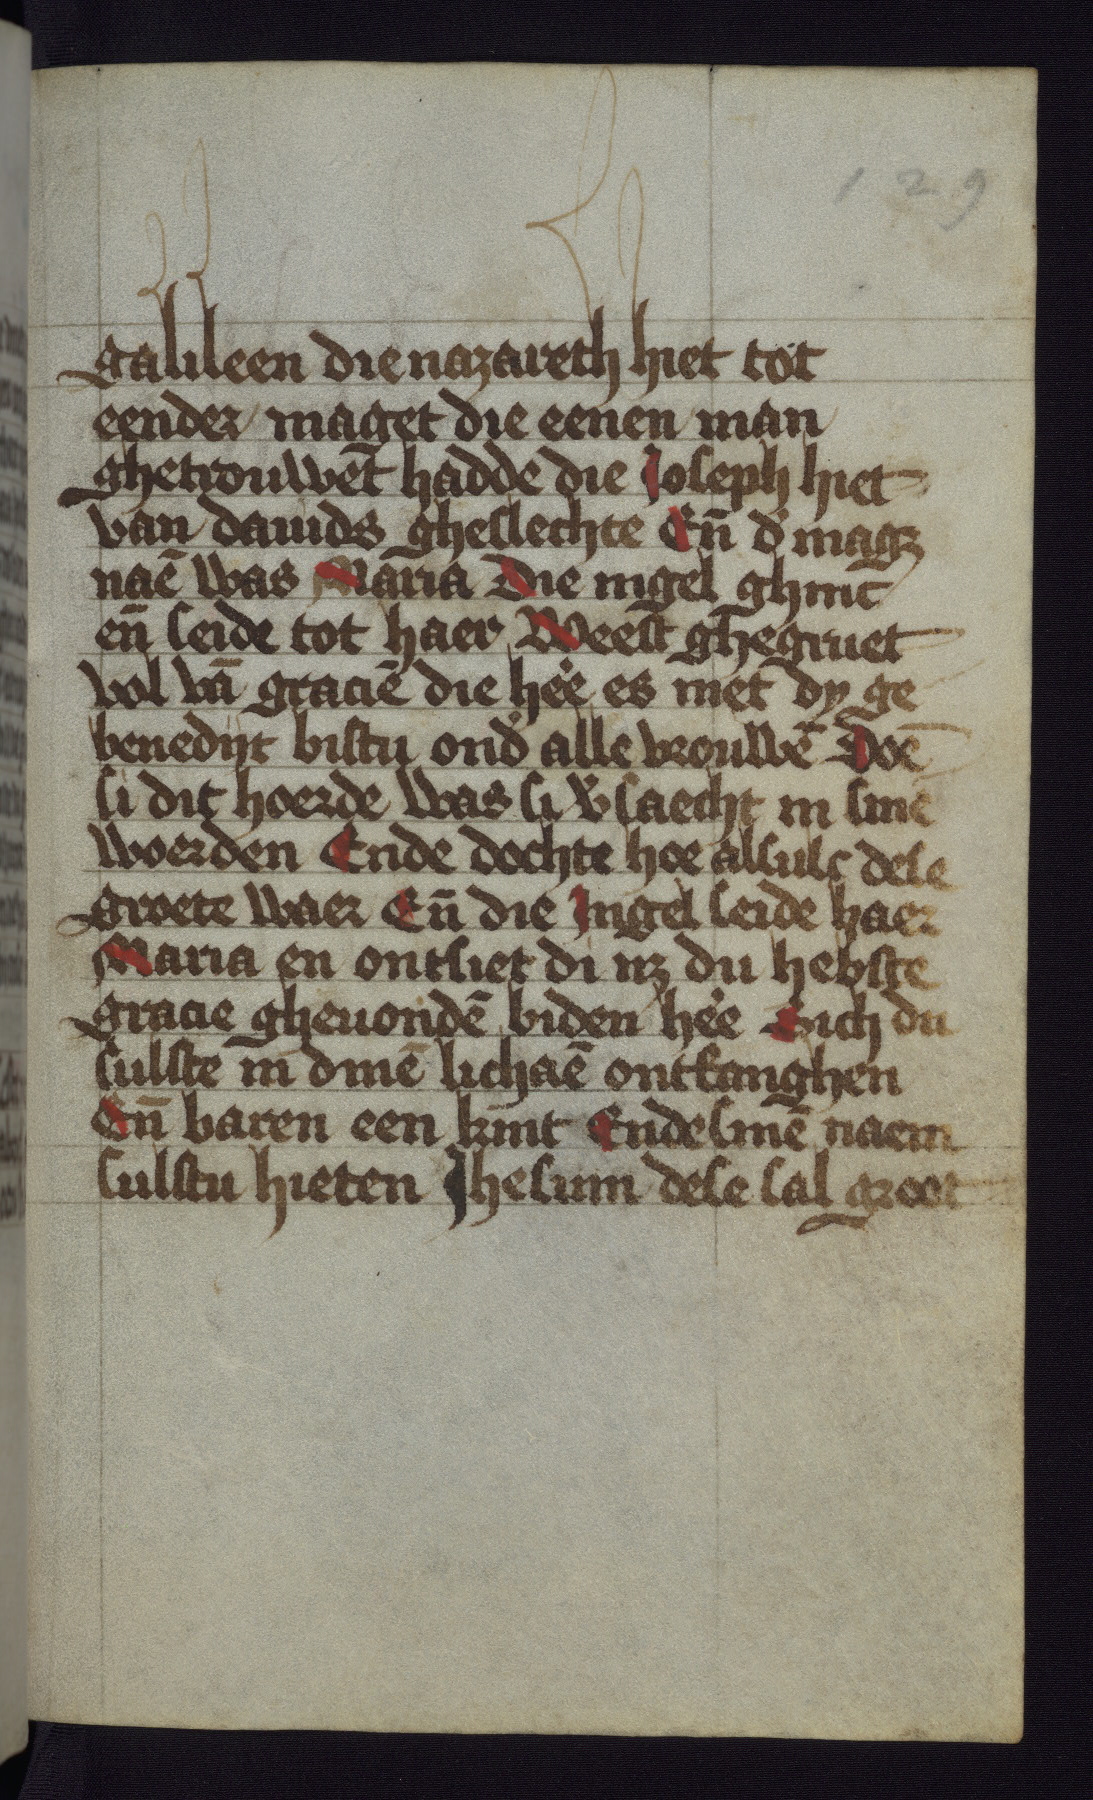 129
galileen die nazareth hiet tot
eender maget die eenen man
ghetrouwet̄ hadde die Joseph hiet
van dauids gheslechte En̄ d' magꝫ
naē was Maria Die ingel ghinc
en̄ seide tot haer Weest ghegruet
vol vā graciē die he'e es met dy ge
benedijt bistu ond' alle vrouwē Doē
si dit hoerde was si v'saecht in sinē
woerden Ende dochte hoe alsulc dese
groete waer En̄ die Ingel seide haer
Maria en ontsiet di nꝫ du hebste
gracie gheuondē biden he'e Sich du
sulste in dinē lichaē ontfanghen
En̄ baren een kint Ende sinē naem
sulstu hieten Jhesum dese sal groot